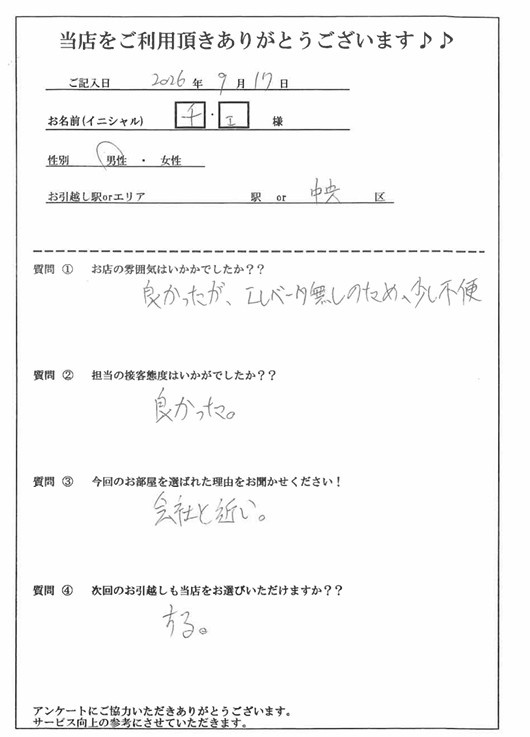 当店をご利用頂きありがとうございます♪♪
ご記入日 2026 年 9 月 17 日
お名前(イニシャル) チ・エ 様
性別 男性 ・ 女性
お引越し駅orエリア 駅 or 中央 区
質問 ① お店の雰囲気はいかかでしたか??
良かったが、エレベータ無しのため、少し不便
質問 ② 担当の接客態度はいかがでしたか??
良かった。
質問 ③ 今回のお部屋を選ばれた理由をお聞かせください!
会社と近い。
質問 ④ 次回のお引越しも当店をお選びいただけますか??
する。
アンケートにご協力いただきありがとうございます。
サービス向上の参考にさせていただきます。